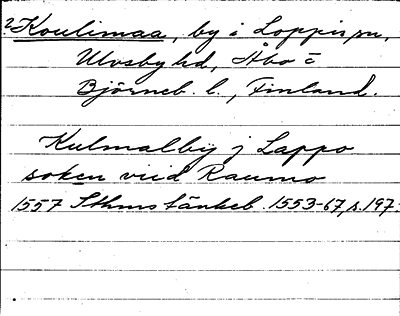 ? Koulimaa, by i Loppis sn,
Ulvsby hd, Åbo o
Björneb. l., Finland.
Kulmalby j Lappo
soken viid Raumo
1557 Sthms tänkeb. 1553-67, s. 197.